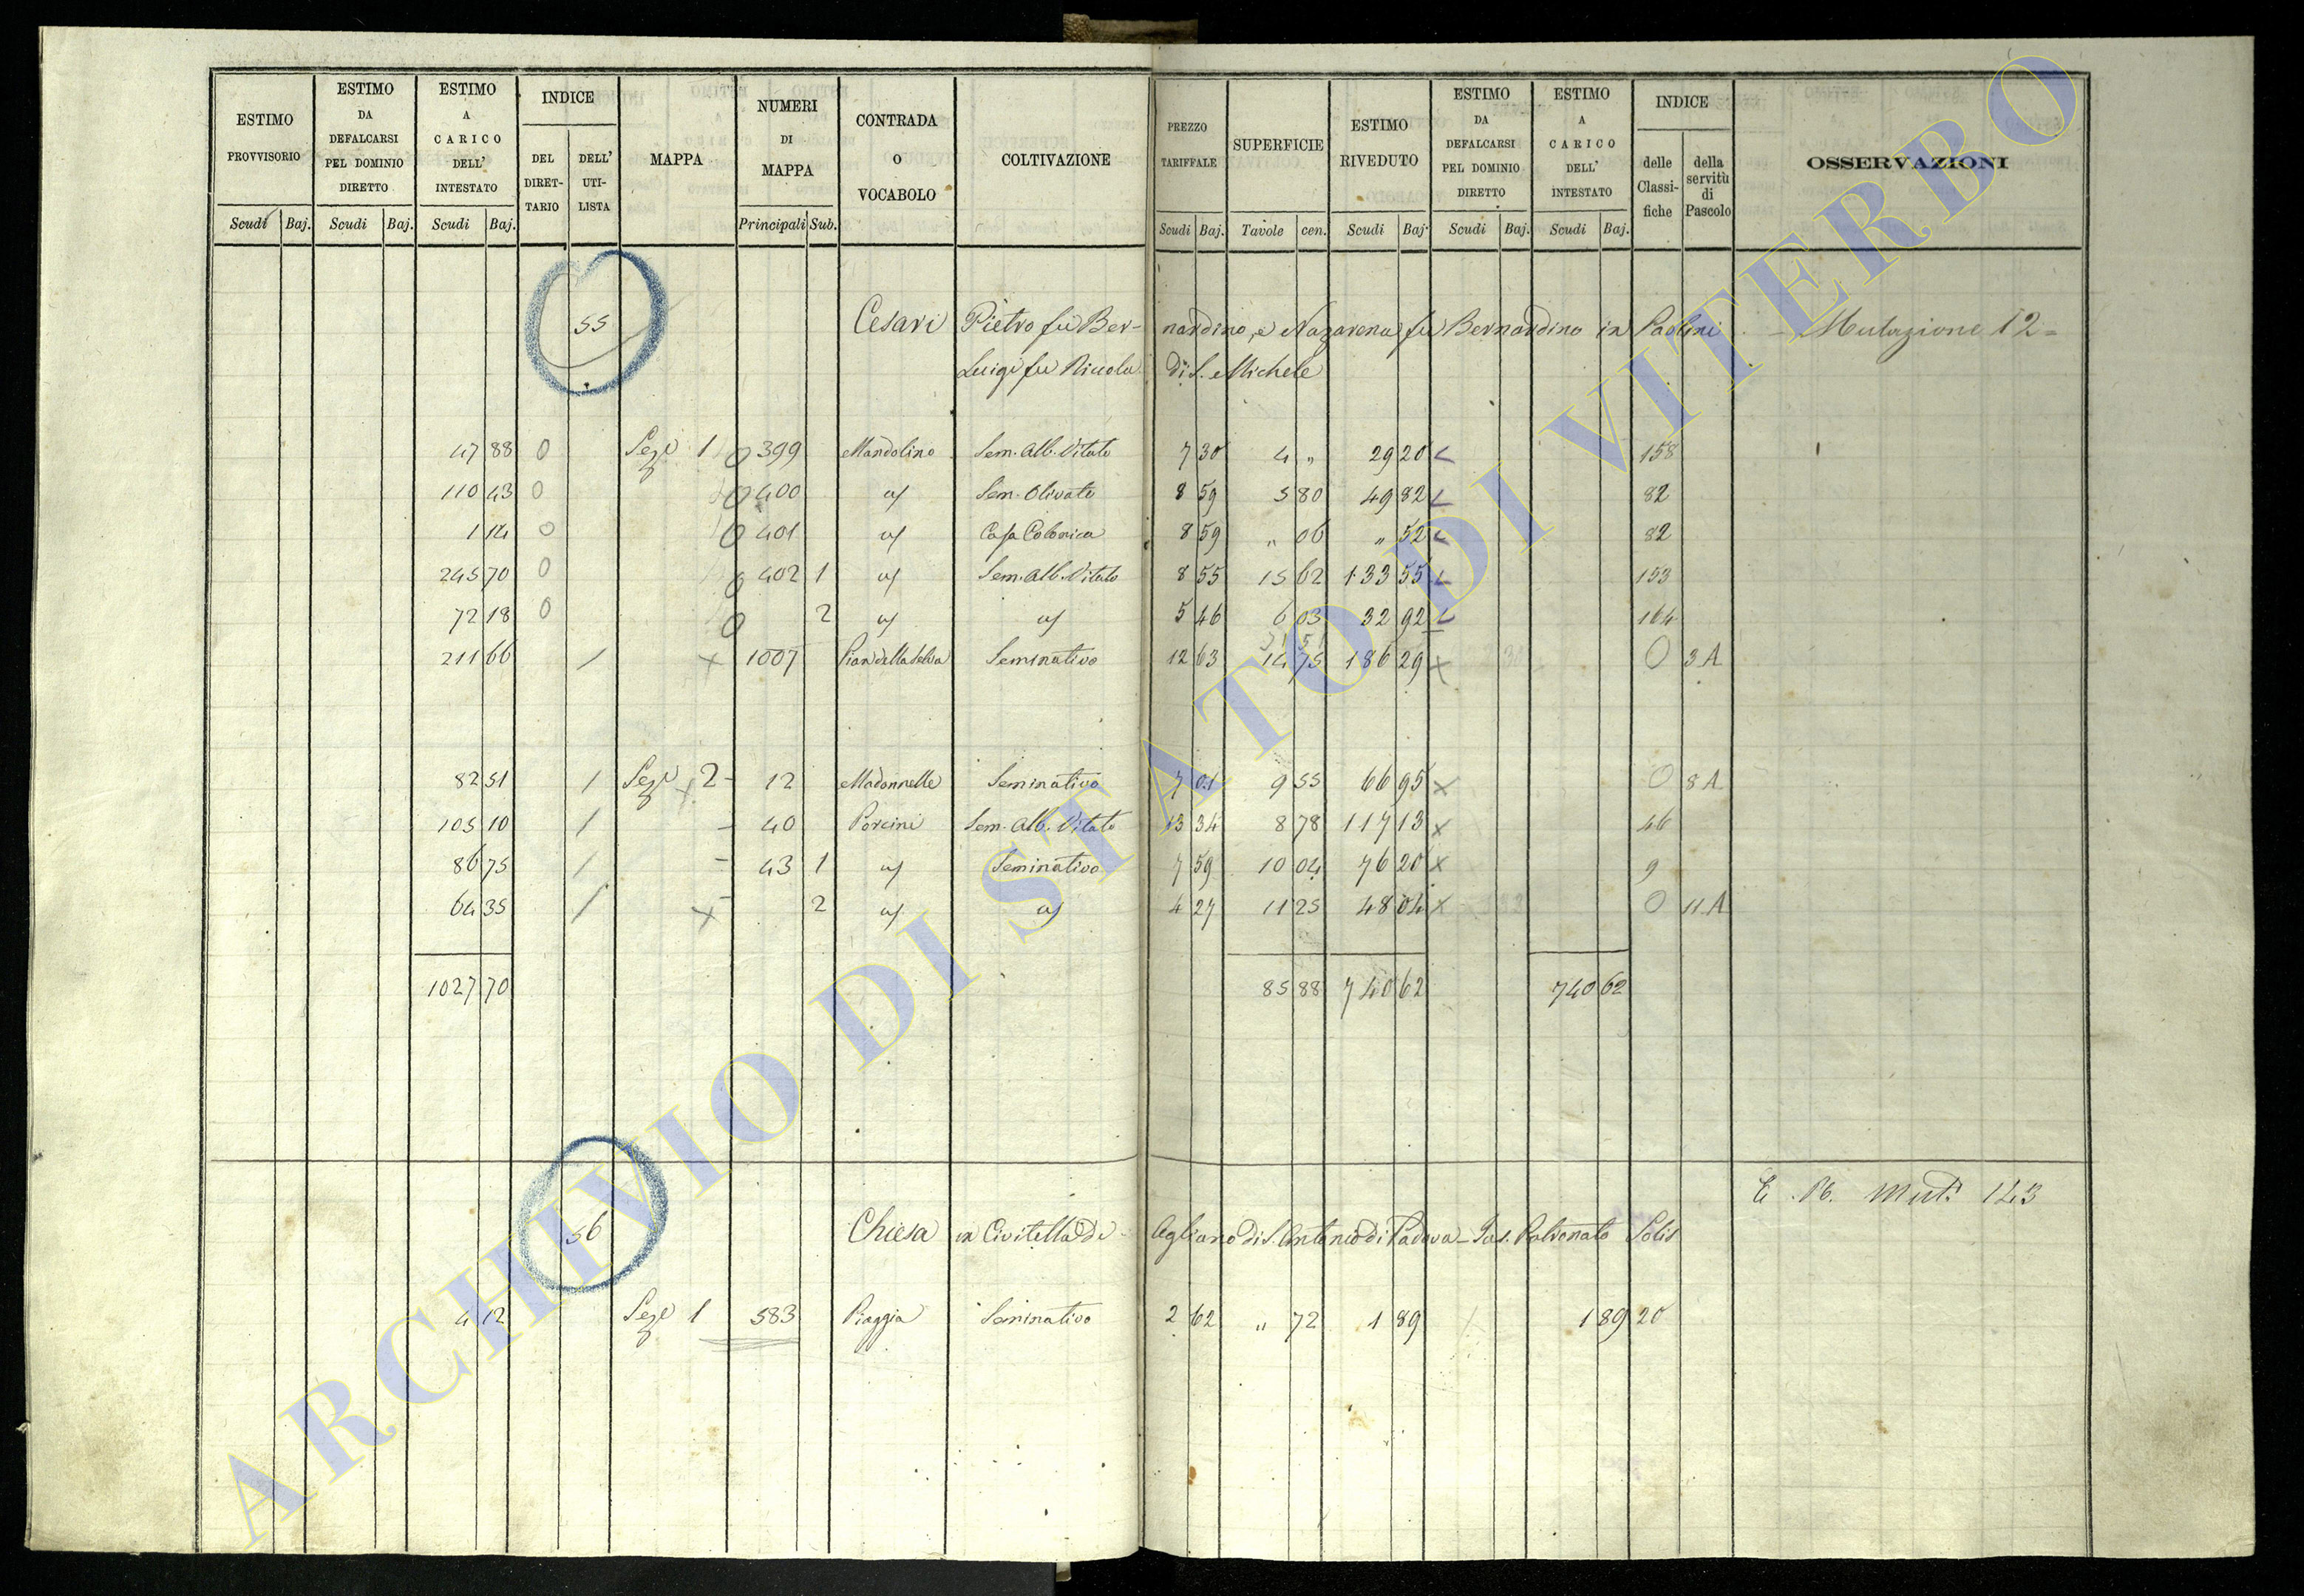 ESTIMO PROVVISORIO | ESTIMO DA DEFALCARSI PEL DOMINIO DIRETTO | ESTIMO A CARICO DELL' INTESTATO | INDICE DEL DIRET-TARIO | DELL' UTI-LISTA | MAPPA | NUMERI DI MAPPA | CONTRADA O VOCABOLO | COLTIVAZIONE | PREZZO TARIFFALE | SUPERFICIE | ESTIMO RIVEDUTO | ESTIMO DA DEFALCARSI PEL DOMINIO DIRETTO | ESTIMO A CARICO DELL' INTESTATO | INDICE delle Classi-fiche | della servitù di Pascolo | OSSERVAZIONI
Scudi Baj. | Scudi Baj. | Scudi Baj. | Principali Sub. | Scudi Baj. | Tavole cen. | Scudi Baj. | Scudi Baj. | Scudi Baj.
55 Cesari Pietro fu Ber-nardino, e Nazarena fu Bernardino in Paolini Mutazione 12=
Luigi fu Nicola di S. Michele
47 88 0 Sezе 1 0 399 Mandolino Sem. Alb. Vitato 7 30 4 „ 29 20 158
110 43 0 0 400 a/ Sem. Olivato 8 59 5 80 49 82 82
1 14 0 0 401 a/ Casa Colonica 8 59 „ 06 „ 52 82
245 70 0 0 402 1 a/ Sem. Alb. Vitato 8 55 15 62 133 55 153
72 18 0 0 2 a/ a/ 5 46 6 03 32 92 164
31 51
211 66 / x 1007 Pian della Selva Seminativo 12 63 14 75 186 29 x 0 3A
82 51 / Seze x 2 - 12 Madonnelle Seminativo 7 01 9 55 66 95 x 0 8A
105 10 / - 40 Porcini Sem. Alb. Vitato 13 34 8 78 117 13 x 46
86 75 / - 43 1 a/ Seminativo 7 59 10 04 76 20 x 9
64 35 / x - 2 a/ a/ 4 27 11 25 48 04 x 0 11A
1027 70 85 88 740 62 740 62
E. Pb. Mut. 143
56 Chiesa in Civitella d'Agliano di S. Antonio di Padova - Jus. Patronato Solis
4 12 Seze 1 583 Piaggia Seminativo 2 62 „ 72 1 89 / 1 89 20
ARCHIVIO DI STATO DI VITERBO